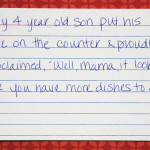 y 4 year old son put his
e on the counter & proudly
oclaimed, "Well, mama, it look
e you have more dishes to